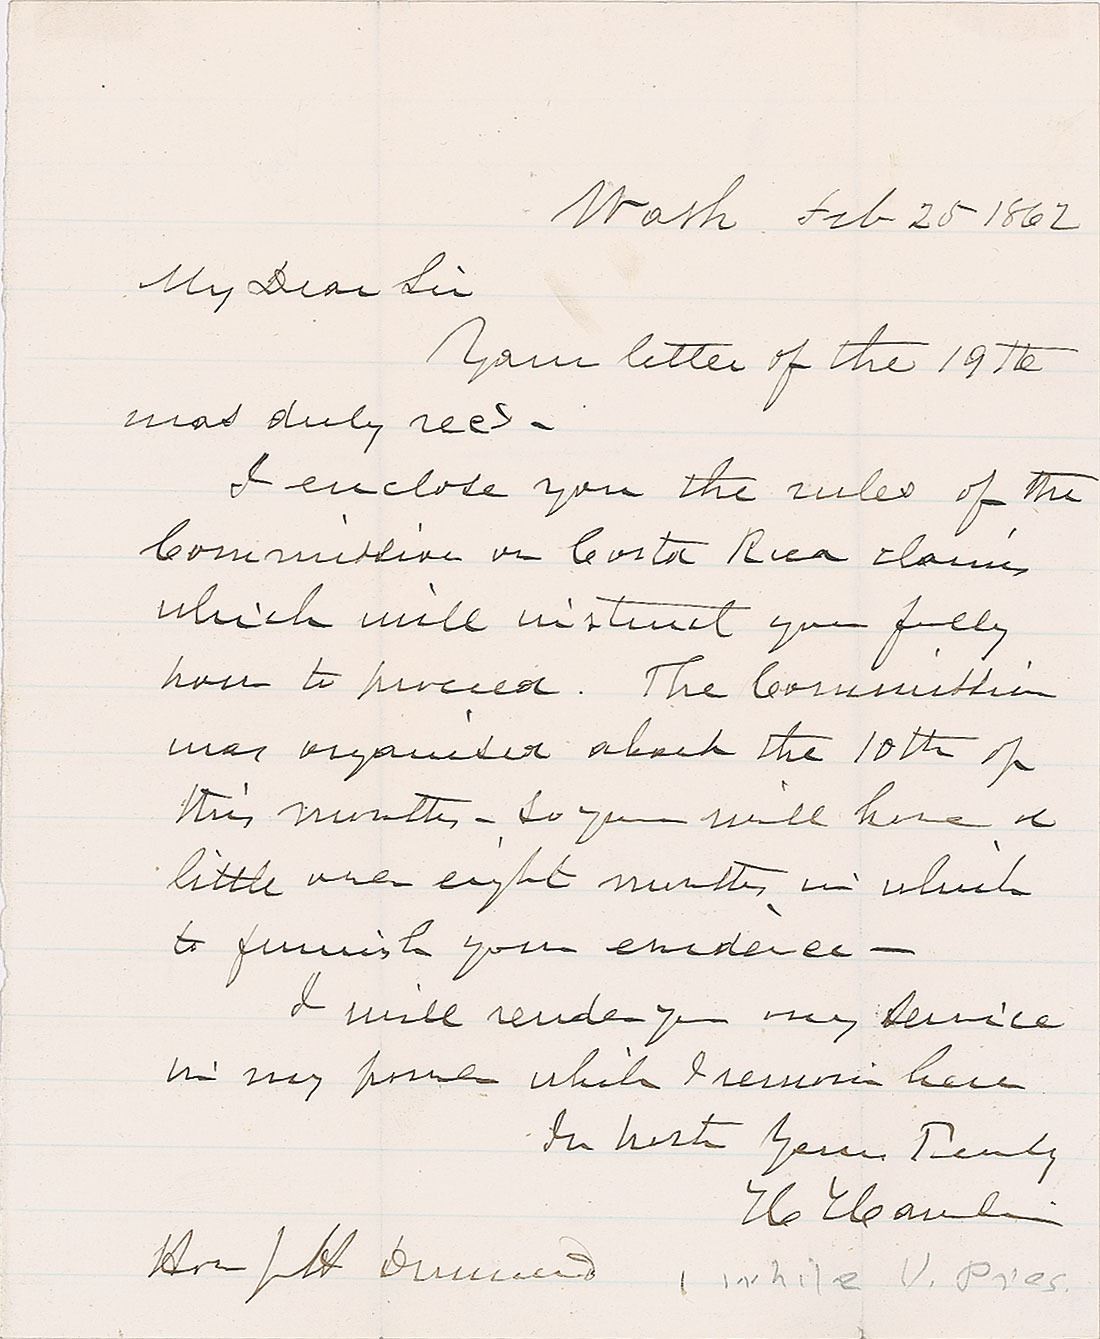 Wash. Feb 25 1862
My Dear Sir
Your letter of the 19th
was duly recd -
I enclose you the rules of the
Commission on Costa Rica claims
which will instruct you fully
how to proceed. The Commission
was organised about the 10th of
this month - so you will have a
little over eight months in which
to furnish your evidence —
I will render you any service
in my power while I remain here
In haste Yours Truly
H Hamlin
Hon J H Drummond
while V. Pres.